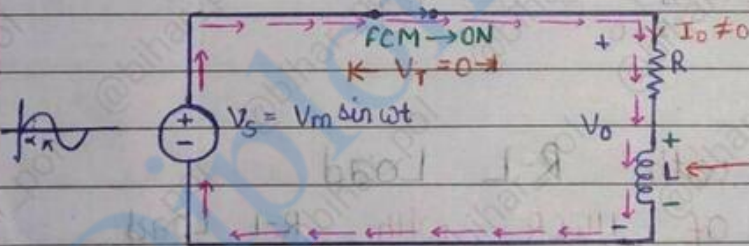 FCM → ON
I₀ ≠ 0
+
V_T = 0
R
V_S = V_m sin ωt
V₀
+
-
+
L
-
-
α π